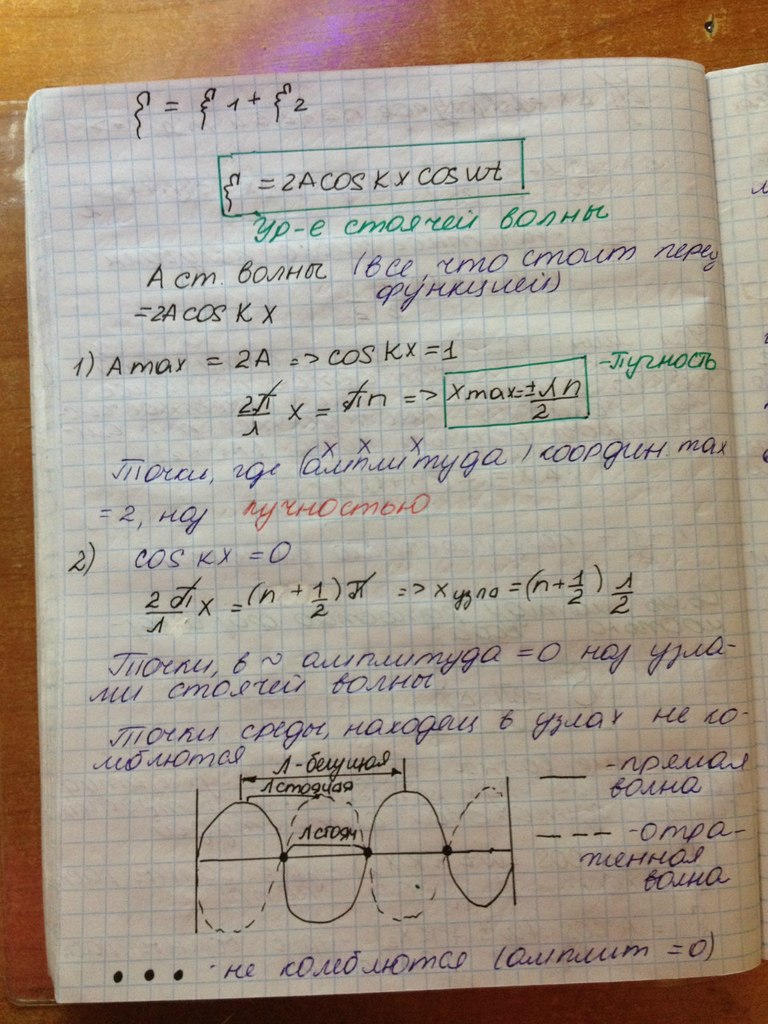 ξ = ξ1 + ξ2
ξ = 2A cos Kx cos ωt
Ур-е стоячей волны
А ст. волны (все, что стоит перед
функцией)
= 2A cos Kx
1) Amax = 2A => cos Kx = 1
2π/λ x = πn => xmax = ± λn/2 - Пучность
Точки, где (амплитуда) координ. max
= 2, наз пучностью
2) cos Kx = 0
2π/λ x = (n + 1/2) π => x узла = (n + 1/2) λ/2
Точки, в ~ амплитуда = 0 наз узла-
ми стоячей волны
Точки среды, находящ в узлах не ко-
леблются
λ - бегущая
λ стоячая
λ стоян
- прямая
волна
- отра-
женная
волна
• • • не колеблются (амплит = 0)